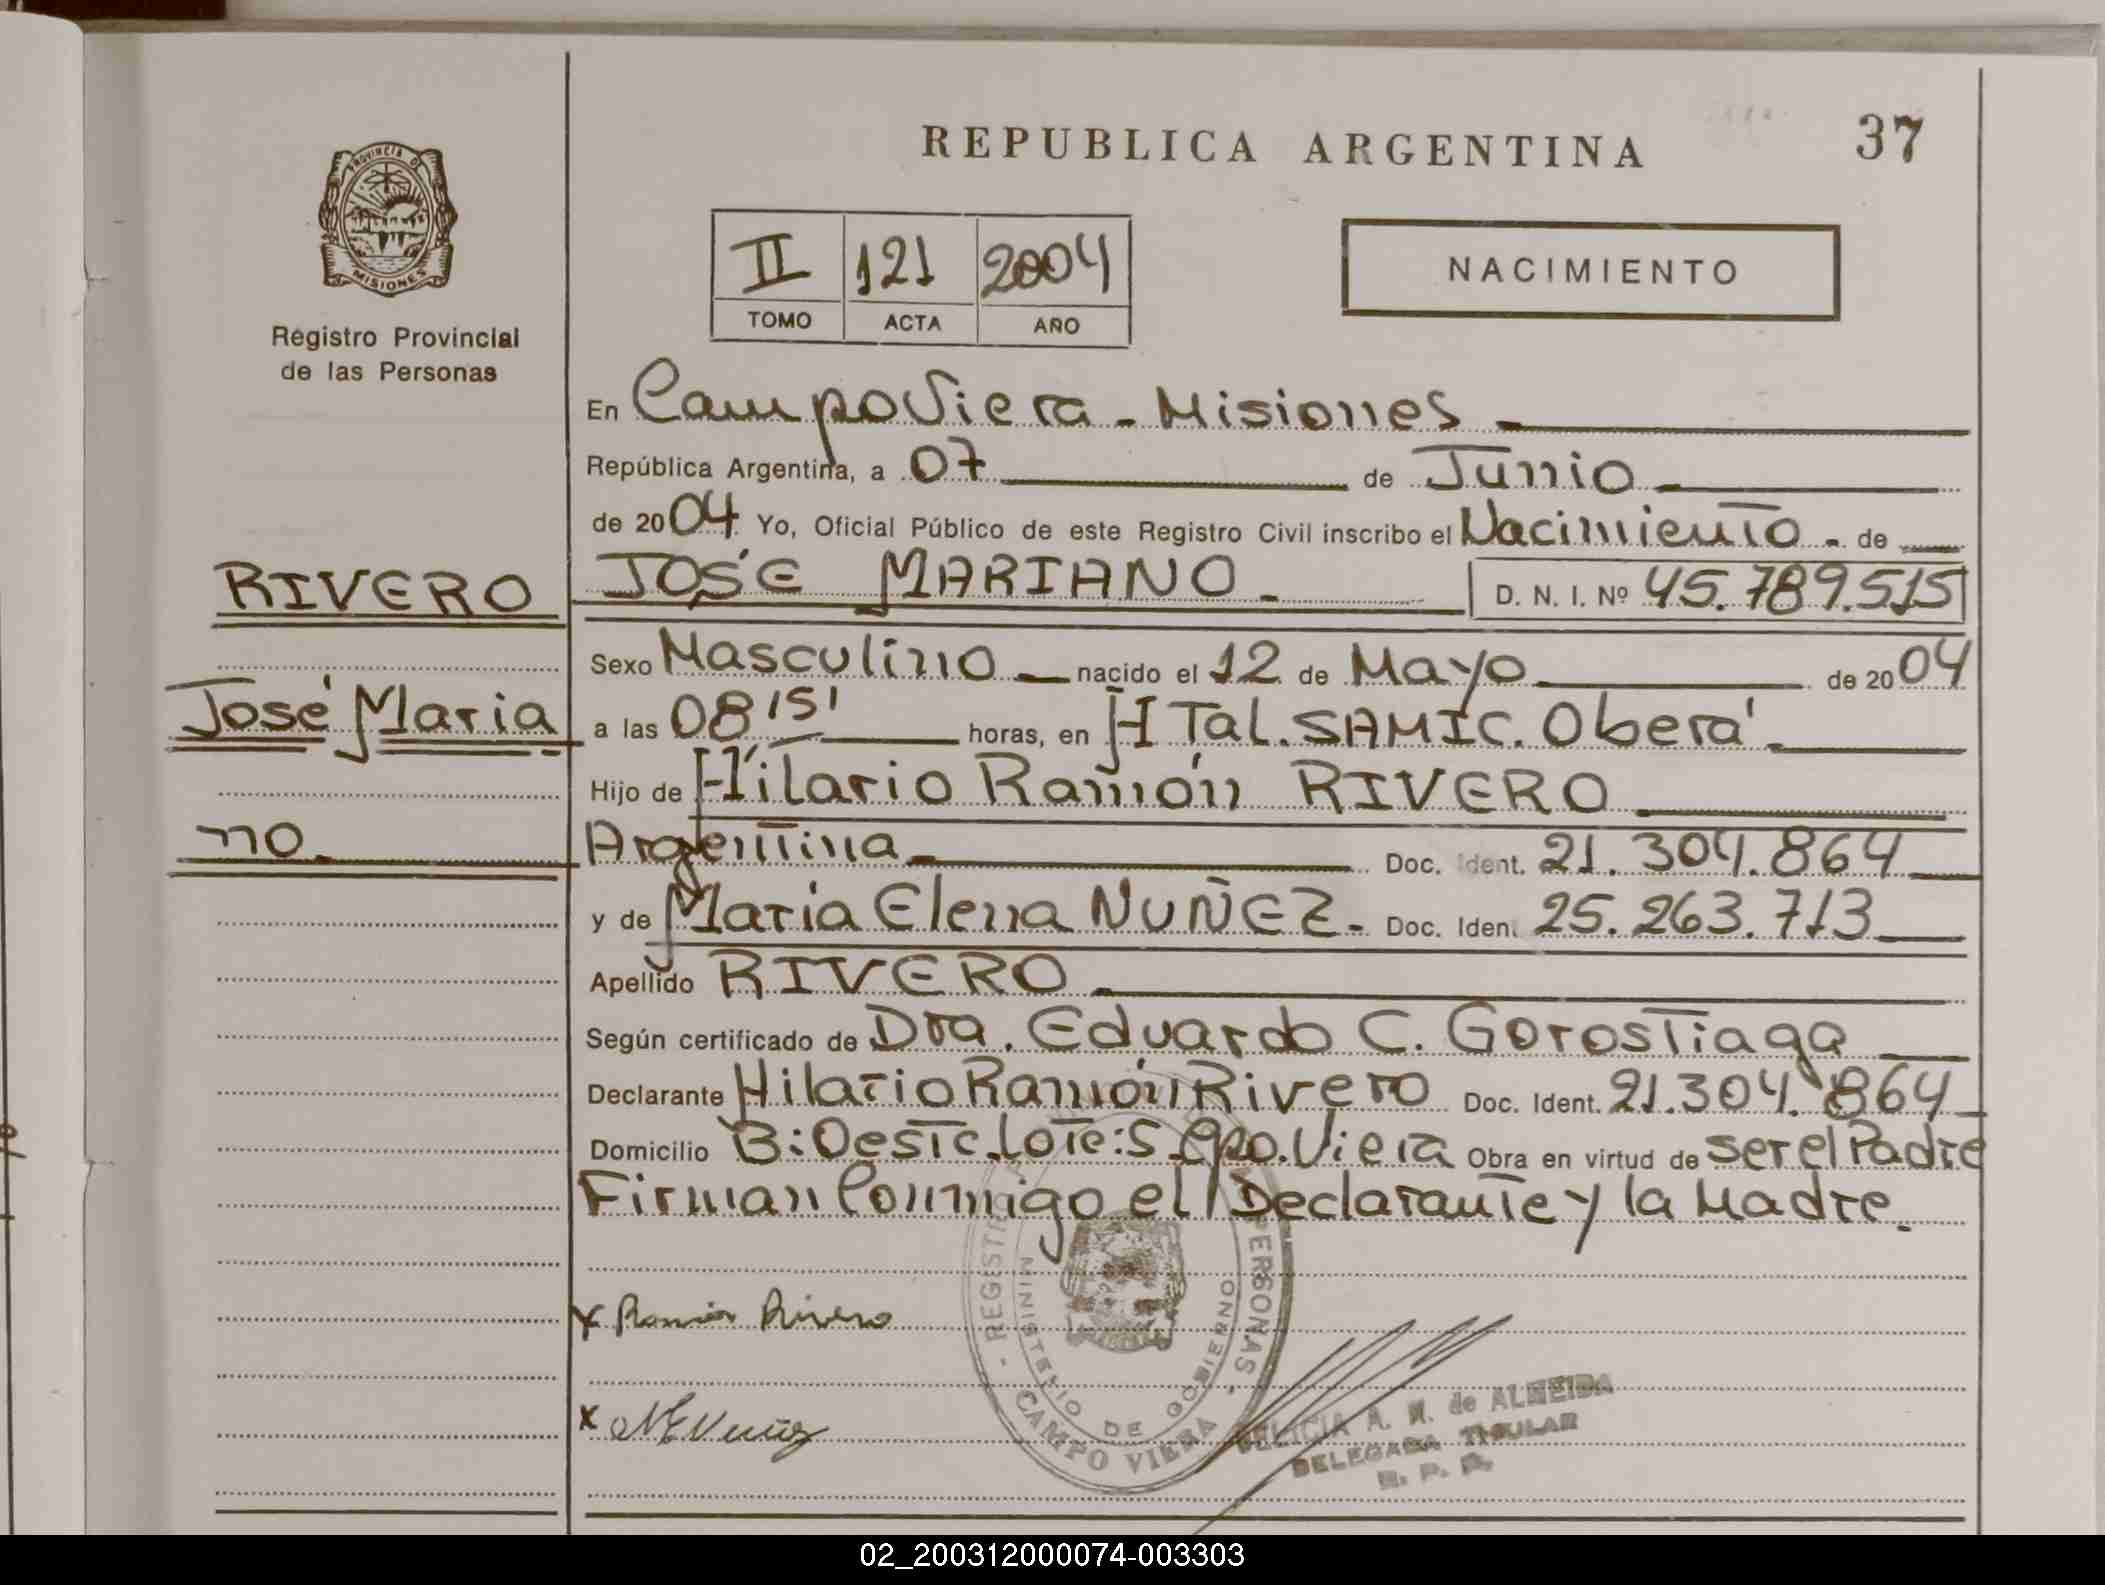 REPUBLICA ARGENTINA
37
PROVINCIA DE
MISIONES
Registro Provincial
de las Personas
II 121 2004
TOMO ACTA AÑO
NACIMIENTO
En Campo Viera - Misiones
República Argentina, a 07 de Junio
de 2004 Yo, Oficial Público de este Registro Civil inscribo el Nacimiento - de
RIVERO
JOSÉ MARIANO - D. N. I. Nº 45.789.515
Sexo Masculino nacido el 12 de Mayo de 2004
José Maria
a las 08'15' horas, en HTal. SAMIC. Oberá
Hijo de Hilario Ramón RIVERO
no.
Argentina Doc. Ident. 21.304.864
y de Maria Elena NUÑEZ- Doc. Iden. 25.263.713
Apellido RIVERO
Según certificado de Dra. Eduardo C. Gorostiaga
Declarante Hilario Ramón Rivero Doc. Ident. 21.304.864
Domicilio B: Oeste. Lote: S. Cpo. Viera Obra en virtud de ser el Padre
Firman Conmigo el Declarante y la Madre.
x Ramón Rivero
x MENuñez
REGISTR PERSONAS -
MINISTERIO DE GOBIERNO
CAMPO VIERA
FELICIA A. M. de ALMEIDA
DELEGADA TITULAR
R. P. P.
02_200312000074-003303